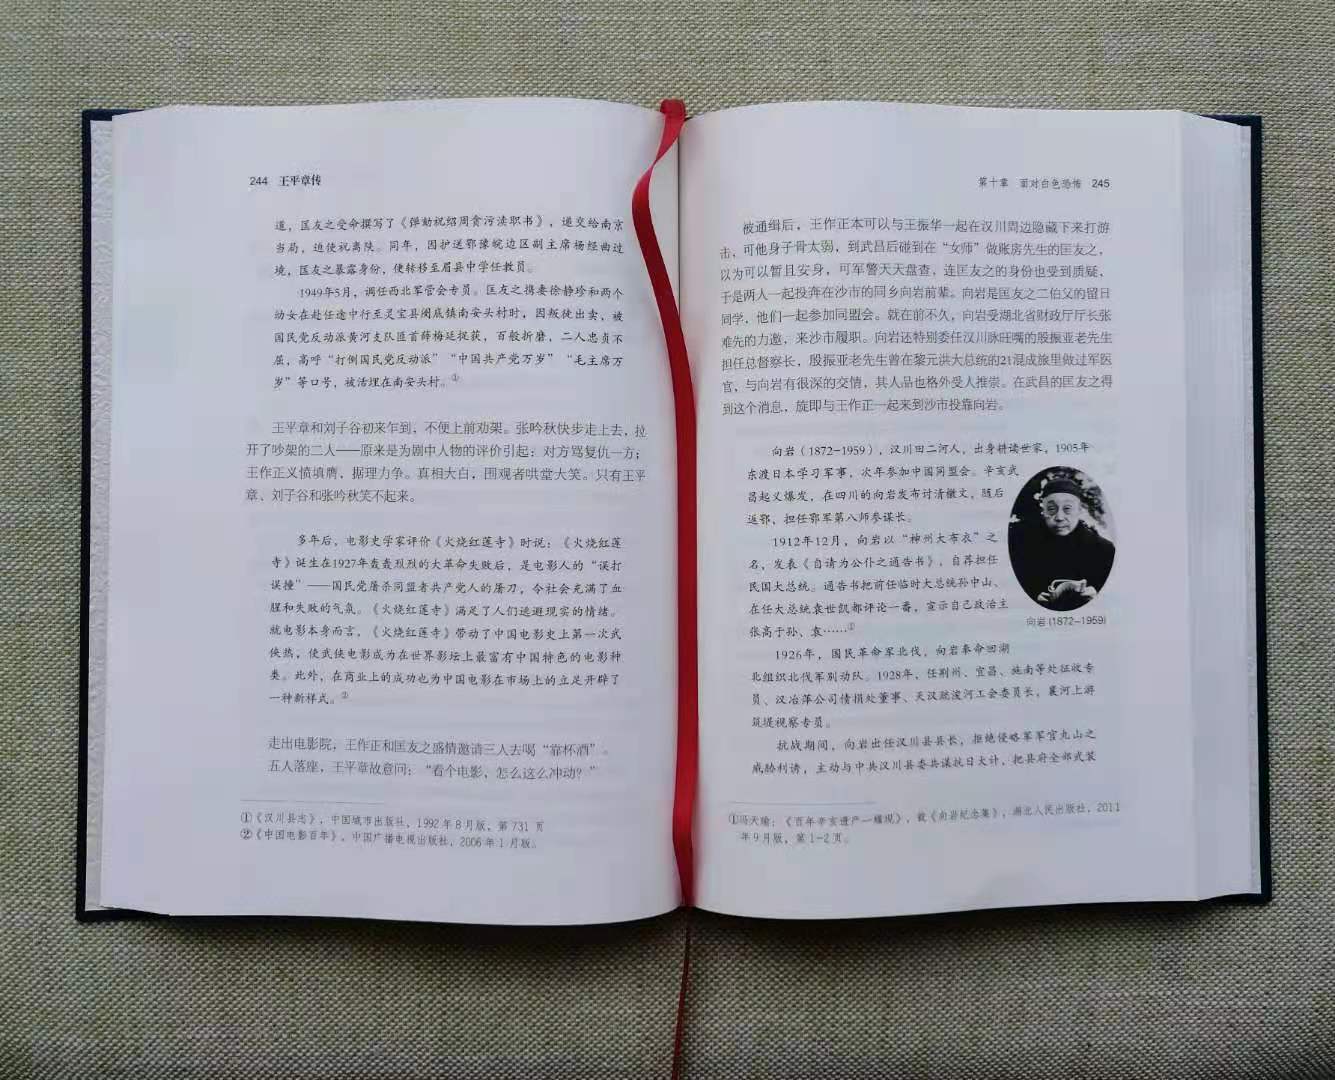 244 王平章传
道，匡友之受命撰写了《弹劾祝绍周贪污渎职书》，递交给南京
当局，迫使祝离陕。同年，因护送鄂豫皖边区副主席杨经曲过
境，匡友之暴露身份，便转移至眉县中学任教员。
1949年5月，调任西北军管会专员。匡友之携妻徐静珍和两个
幼女在赴任途中行至灵宝县阌底镇南安头村时，因叛徒出卖，被
国民党反动派黄河支队匪首薛梅廷捉获，百般折磨，二人忠贞不
屈，高呼“打倒国民党反动派”“中国共产党万岁”“毛主席万
岁”等口号，被活埋在南安头村。①
王平章和刘子谷初来乍到，不便上前劝架。张吟秋快步走上去，拉
开了吵架的二人——原来是为剧中人物的评价引起：对方骂复仇一方；
王作正义愤填膺，据理力争。真相大白，围观者哄堂大笑。只有王平
章、刘子谷和张吟秋笑不起来。
多年后，电影史学家评价《火烧红莲寺》时说：《火烧红莲
寺》诞生在1927年轰轰烈烈的大革命失败后，是电影人的“误打
误撞”——国民党屠杀同盟者共产党人的屠刀，令社会充满了血
腥和失败的气氛。《火烧红莲寺》满足了人们逃避现实的情绪。
就电影本身而言，《火烧红莲寺》带动了中国电影史上第一次武
侠热，使武侠电影成为在世界影坛上最富有中国特色的电影种
类。此外，在商业上的成功也为中国电影在市场上的立足开辟了
一种新样式。②
走出电影院，王作正和匡友之盛情邀请三人去喝“靠杯酒”。
五人落座，王平章故意问：“看个电影，怎么这么冲动？”
①《汉川县志》，中国城市出版社，1992年8月版，第731页
②《中国电影百年》，中国广播电视出版社，2006年1月版。
第十章 面对白色恐怖 245
被通缉后，王作正本可以与王振华一起在汉川周边隐藏下来打游
击，可他身子骨太弱，到武昌后碰到在“女师”做账房先生的匡友之，
以为可以暂且安身，可军警天天盘查，连匡友之的身份也受到质疑，
于是两人一起投奔在沙市的同乡向岩前辈。向岩是匡友之二伯父的留日
同学，他们一起参加同盟会。就在前不久，向岩受湖北省财政厅厅长张
难先的力邀，来沙市履职。向岩还特别委任汉川脉旺嘴的殷振亚老先生
担任总督察长，殷振亚老先生曾在黎元洪大总统的21混成旅里做过军医
官，与向岩有很深的交情，其人品也格外受人推崇。在武昌的匡友之得
到这个消息，旋即与王作正一起来到沙市投靠向岩。
向岩（1872-1959），汉川田二河人，出身耕读世家，1905年
东渡日本学习军事，次年参加中国同盟会。辛亥武
昌起义爆发，在四川的向岩发布讨清檄文，随后
返鄂，担任鄂军第八师参谋长。
1912年12月，向岩以“神州大布衣”之
名，发表《自请为公仆之通告书》，自荐担任
民国大总统。通告书把前任临时大总统孙中山、
在任大总统袁世凯都评论一番，宣示自己政治主
张高于孙、袁……①
向岩(1872-1959)
1926年，国民革命军北伐，向岩奉命回湖
北组织北伐军别动队。1928年，任荆州、宜昌、施南等处征收专
员、汉冶萍公司债捐处董事、天汉疏浚河工会委员长，襄河上游
筑堤视察专员。
抗战期间，向岩出任汉川县县长，拒绝侵略军军官丸山之
威胁利诱，主动与中共汉川县委共谋抗日大计，把县府全部武装
①冯天瑜：《百年辛亥遗产一耀现》，载《向岩纪念集》，湖北人民出版社，2011
年9月版，第1-2页。